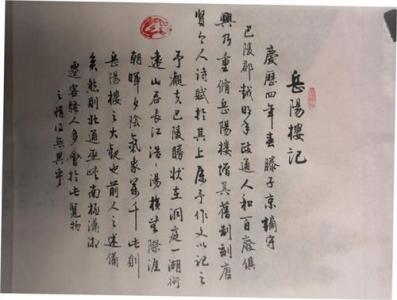 岳陽樓記
慶歷四年春滕子京謫守
巴陵郡越明年政通人和百廢俱
興乃重脩岳陽樓增其舊制刻唐
賢今人詩賦於其上屬予作文以記之
予觀夫巴陵勝狀在洞庭一湖銜
遠山吞長江浩浩湯湯橫無際涯
朝暉夕陰氣象萬千此則
岳陽樓之大觀也前人之述備
矣然則北通巫峽南極瀟湘
遷客騷人多會於此覽物
之情得無異乎